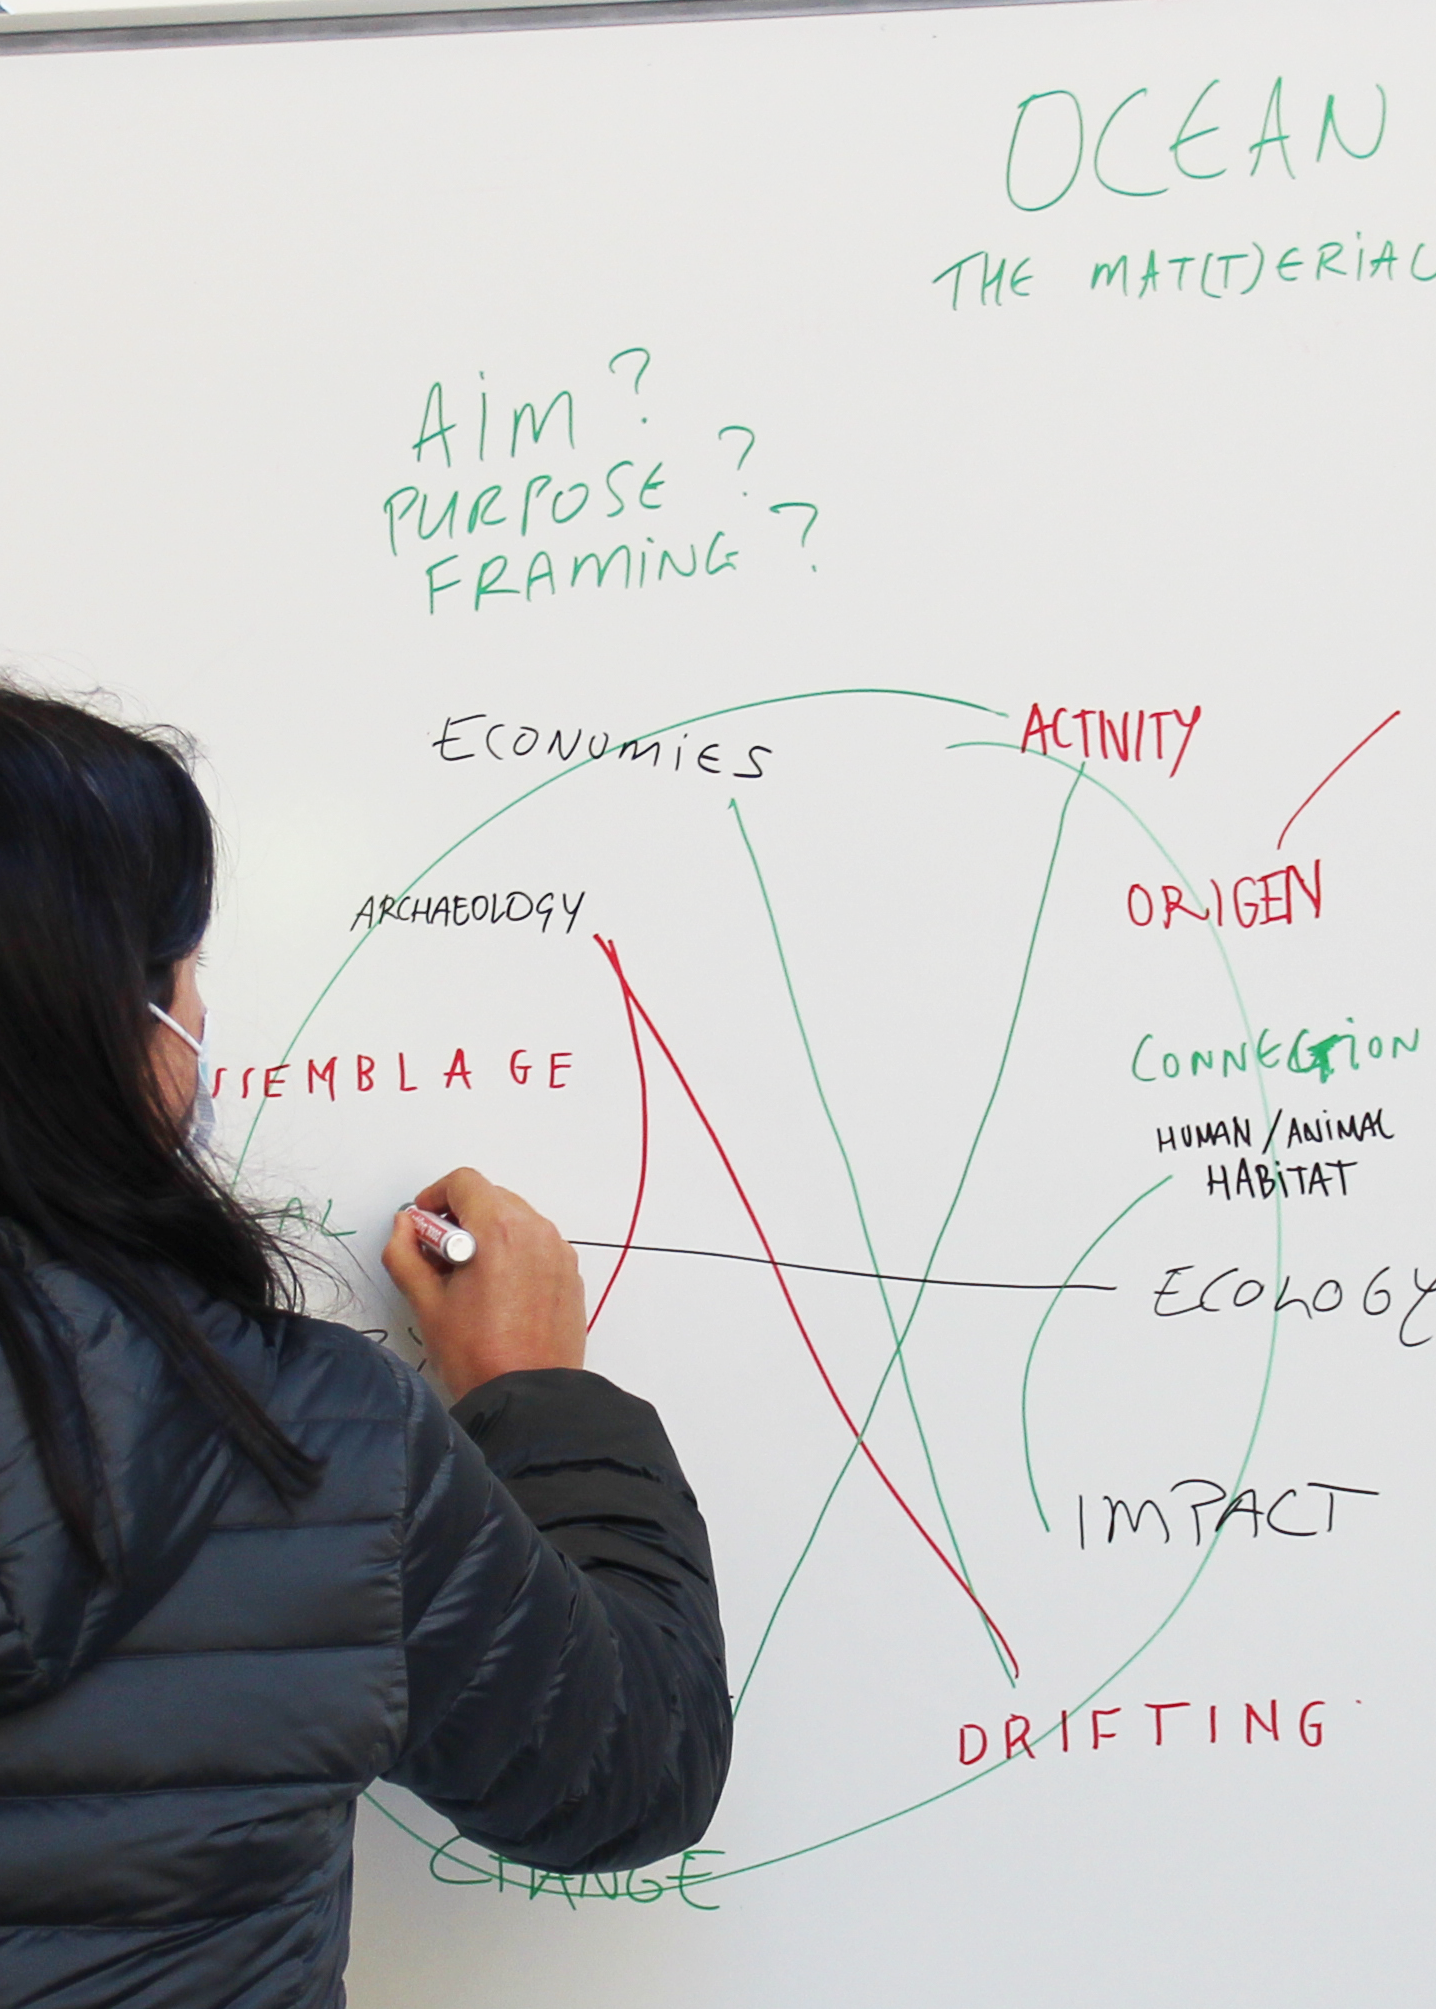 OCEAN
THE MAT(T)ERIAL
AIM?
PURPOSE?
FRAMING?
ECONOMIES
ACTIVITY
ARCHAEOLOGY
ORIGEN
CONNECTION
SSEMBLAGE
HUMAN/ANIMAL
HABITAT
AL
ECOLOGY
IMPACT
DRIFTING
CHANGE